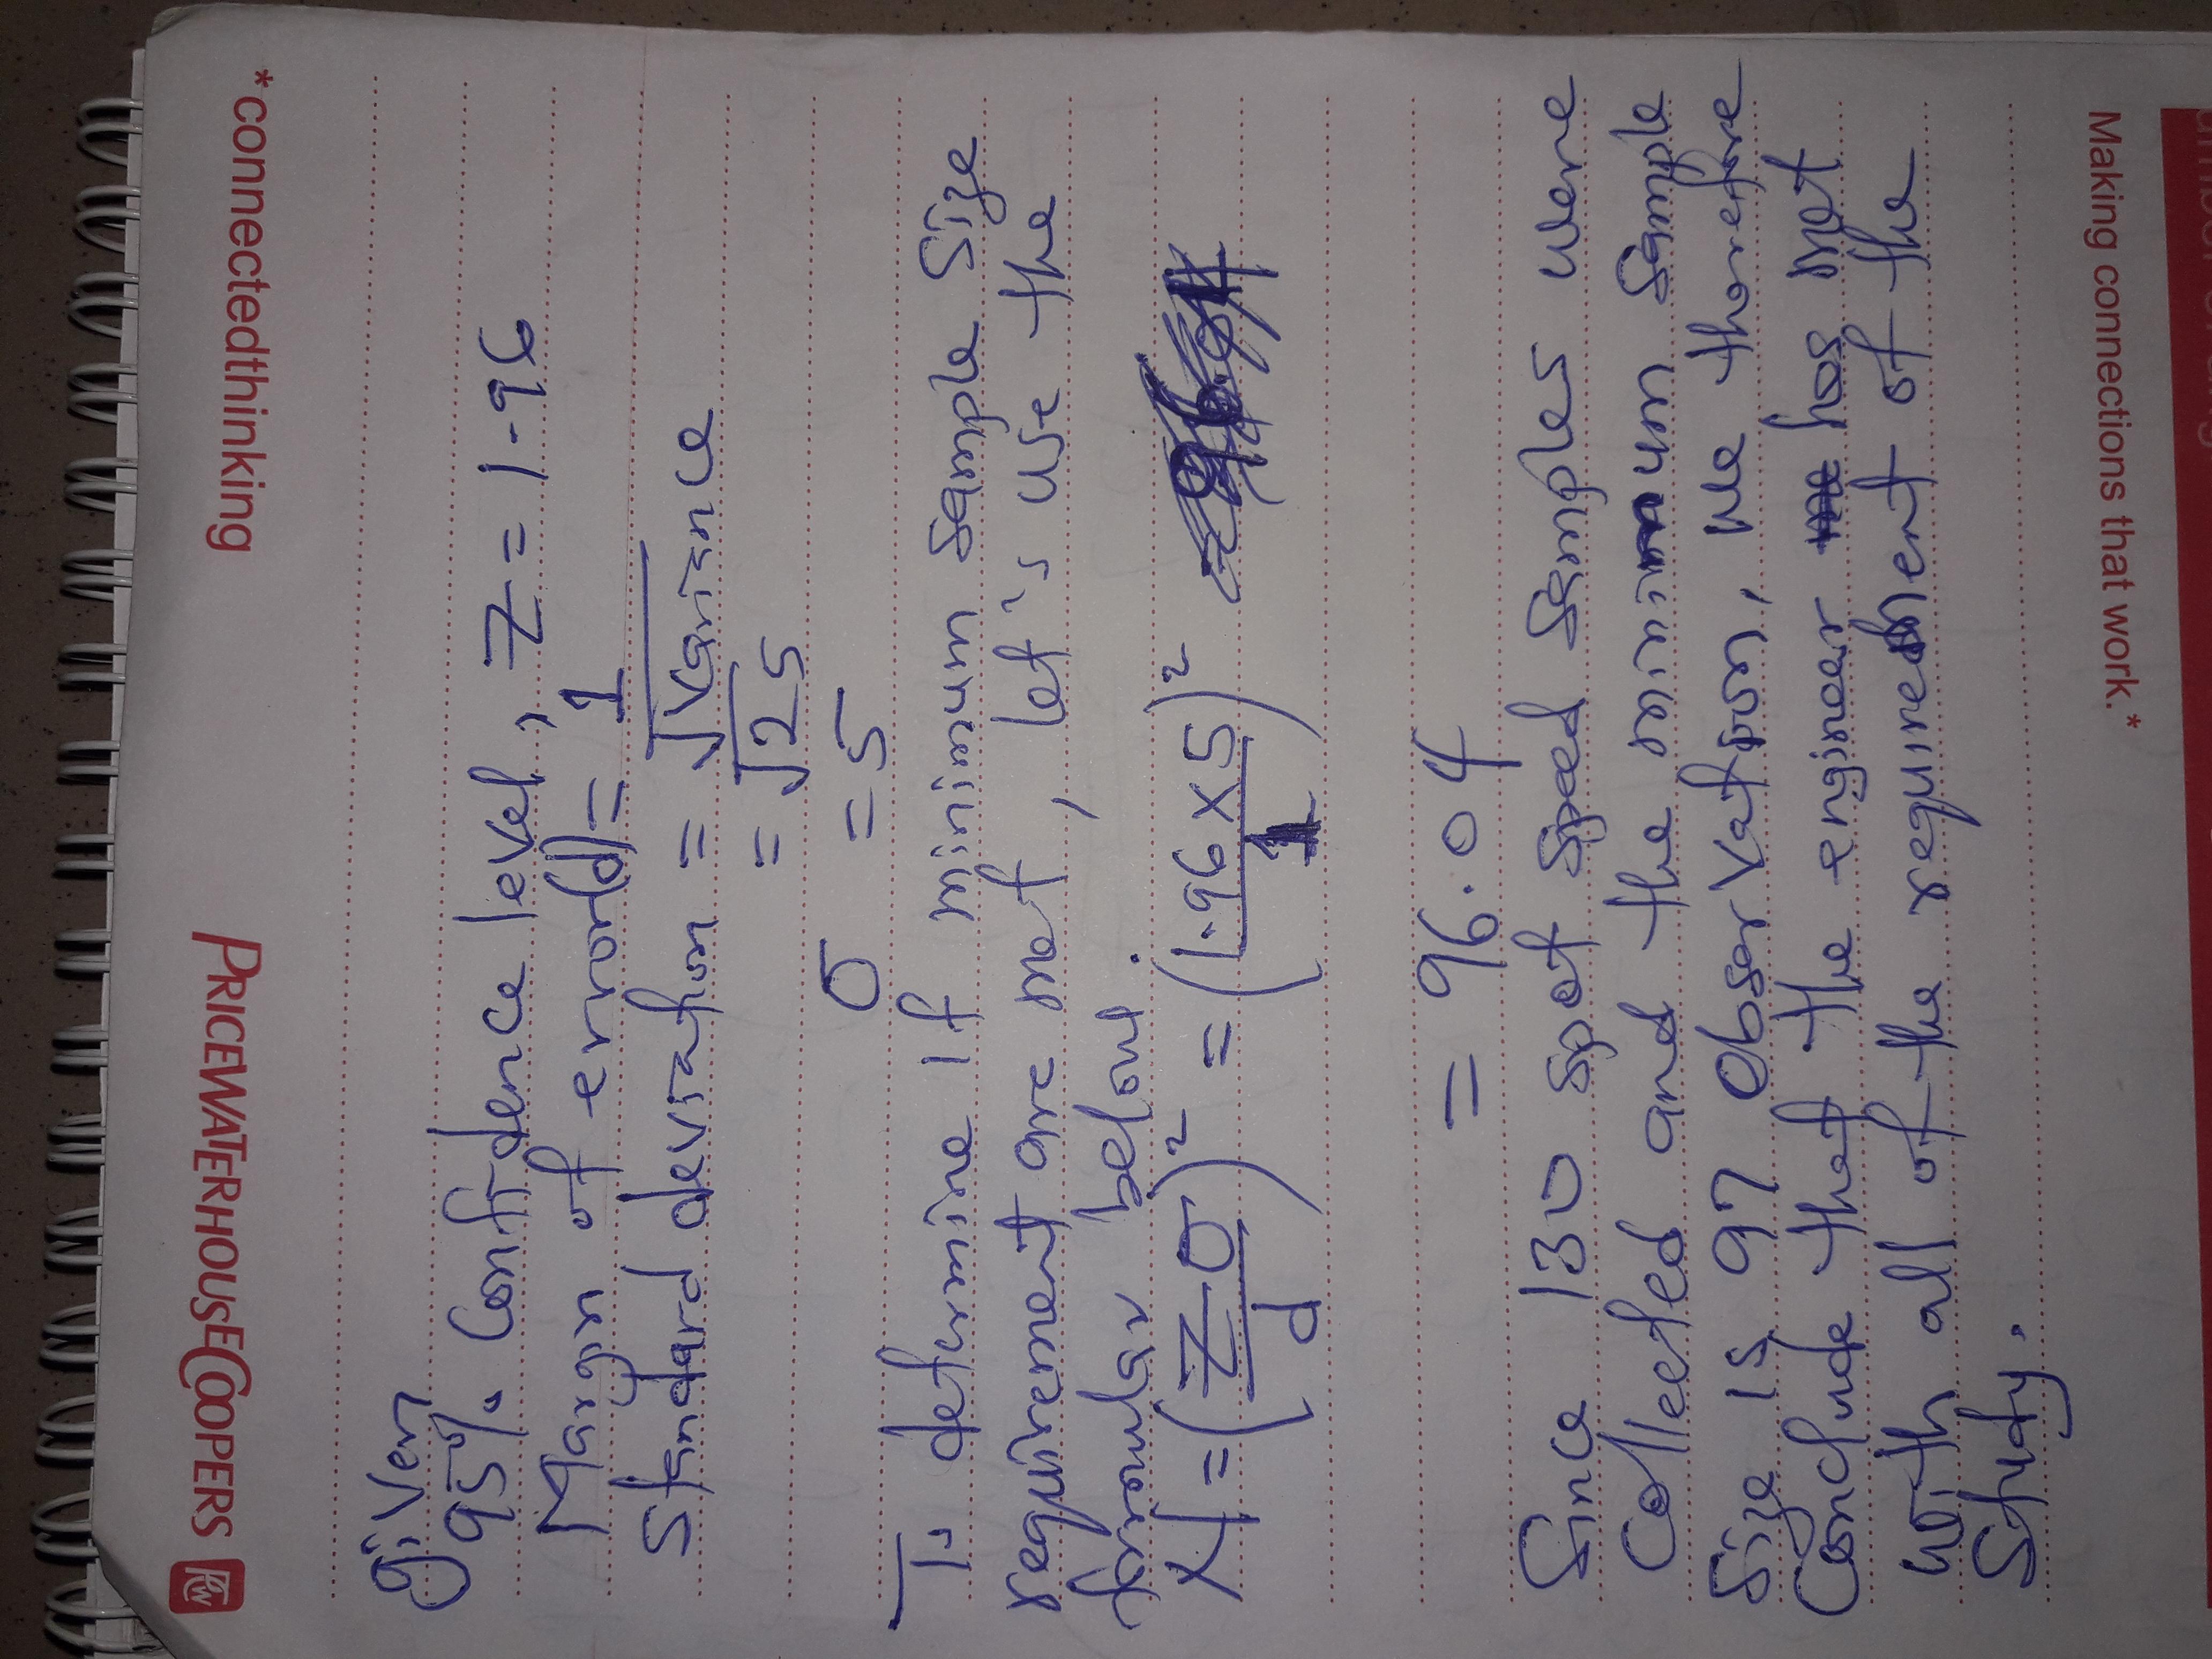 PRICEWATERHOUSECOOPERS *connectedthinking
pwc
Given
95% Confidence level, Z = 1.96
Margin of error(d) = 1
Standard deviation = √Variance
= √25
σ = 5
To determine if minimum sample size
requirement are met, let's use the
formular below.
N = (Z·σ/d)² = (1.96×5/1)²
= 96.04
Since 130 spot speed samples were
Collected and the minimum sample
Size is 97 Observation, We therefore
Conclude that the engineer has met
with all of the requirement of the
Study.
Making connections that work.*